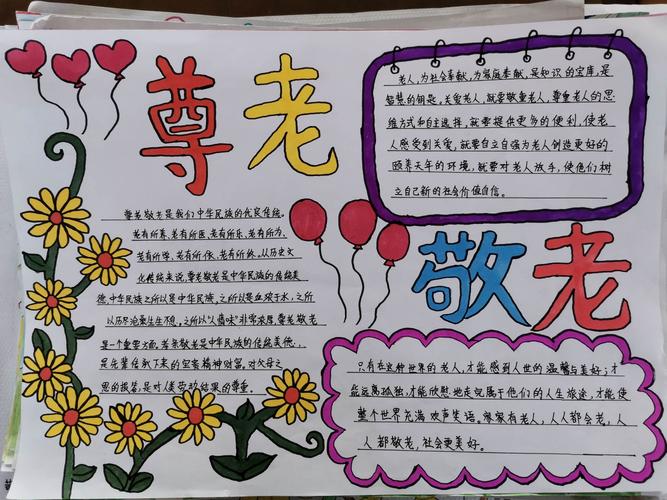 尊老
老人,为社会奉献,为家庭奉献,是知识的宝库,是
智慧的钥匙,关爱老人,就要敬重老人,尊重老人的思
维方式和自主选择,就要提供更多的便利,使老
人感受到关爱,就要自立自强为老人创造更好的
颐养天年的环境,就要对老人放手,使他们树
立自己新的社会价值自信。
尊老敬老是我们中华民族的优良传统。
老有所养、老有所医、老有所乐、老有所为、
老有所学、老有所依、老有所终。从历史文
化传统来说,尊老敬老是中华民族的传统美
德,中华民族之所以是中华民族,之所以是血浓于水,之所
以历尽沧桑生生不息,之所以"人情味"非常浓厚,尊老敬老
是一个重要方面,尊亲敬老是中华民族的传统美德,
是先辈传承下来的宝贵精神财富,对父母之
恩的报答,是对人类劳动结果的尊重。
敬老
只有在这种世界的老人,才能感到人世的温馨与美好;才
能远离孤独,才能欣慰地走完属于他们的人生旅途,才能使
整个世界充满欢声笑语。家家有老人,人人都会老,人
人都敬老,社会更美好。